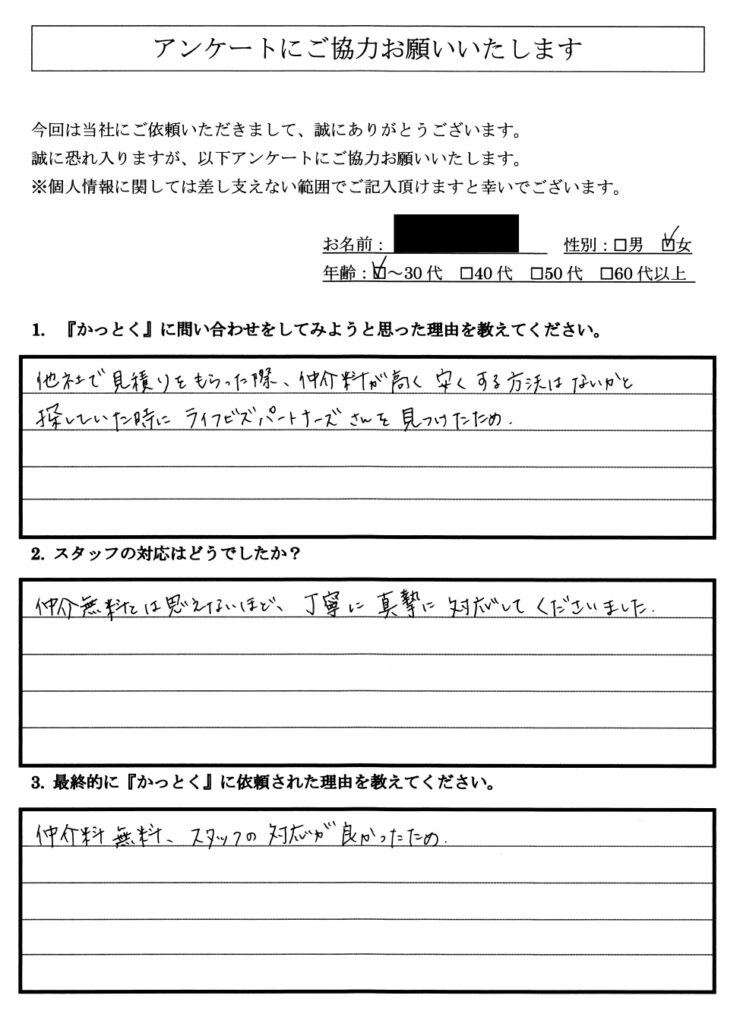 アンケートにご協力お願いいたします
今回は当社にご依頼いただきまして、誠にありがとうございます。
誠に恐れ入りますが、以下アンケートにご協力お願いいたします。
※個人情報に関しては差し支えない範囲でご記入頂けますと幸いでございます。
お名前： 性別：□男 ☑女
年齢：☑～30代 □40代 □50代 □60代以上
1. 『かっとく』に問い合わせをしてみようと思った理由を教えてください。
他社で見積りをもらった際、仲介料が高く安くする方法はないかと
探していた時にライフビズパートナーズさんを見つけたため.
2. スタッフの対応はどうでしたか？
仲介無料とは思えないほど、丁寧に真摯に対応してくださいました.
3. 最終的に『かっとく』に依頼された理由を教えてください。
仲介料無料、スタッフの対応が良かったため.